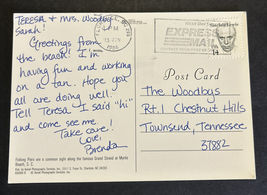 Teresa + Mrs. Woodby
Sarah!
Greetings from
the beach! I'm
having fun and working
on a tan. Hope you
all are doing well.
Tell Teresa I said "hi"
and come see me.
Take care!
Love,
Brenda
Fishing Piers are a common sight along the famous Grand Strand at Myrtle
Beach, S. C.
PM
1986
EXPRESS
MAIL
14
Post Card
The Woodbys
Rt. 1 Chestnut Hills
Townsend, Tennessee
37882